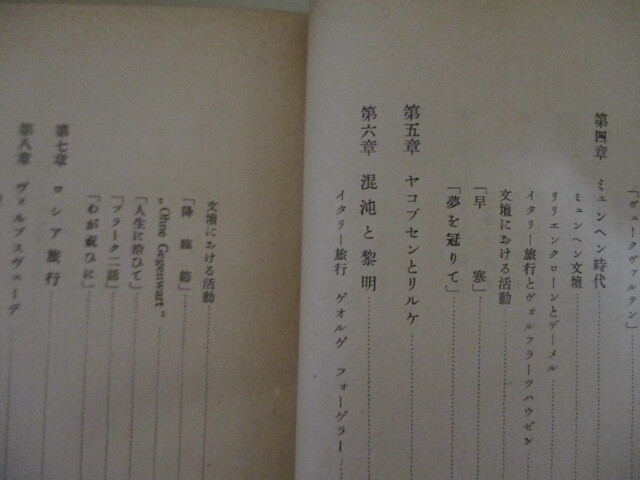 「ヴェークヴァルテン」
第四章 ミュンヘン時代
ミュンヘン文壇
リリエンクローンとデーメル
イタリー旅行とヴォルフラーツハウゼン
文壇における活動
「早 寒」
「夢を冠りて」
第五章 ヤコブセンとリルケ
第六章 混沌と黎明
イタリー旅行 ゲオルゲ フォーゲラー
文壇における活動
「降臨節」
„Ohne Gegenwart“
「人生に沿ひて」
「プラーク二話」
「わが祝ひに」
第七章 ロシア旅行
第八章 ヴォルプスヴェーデ